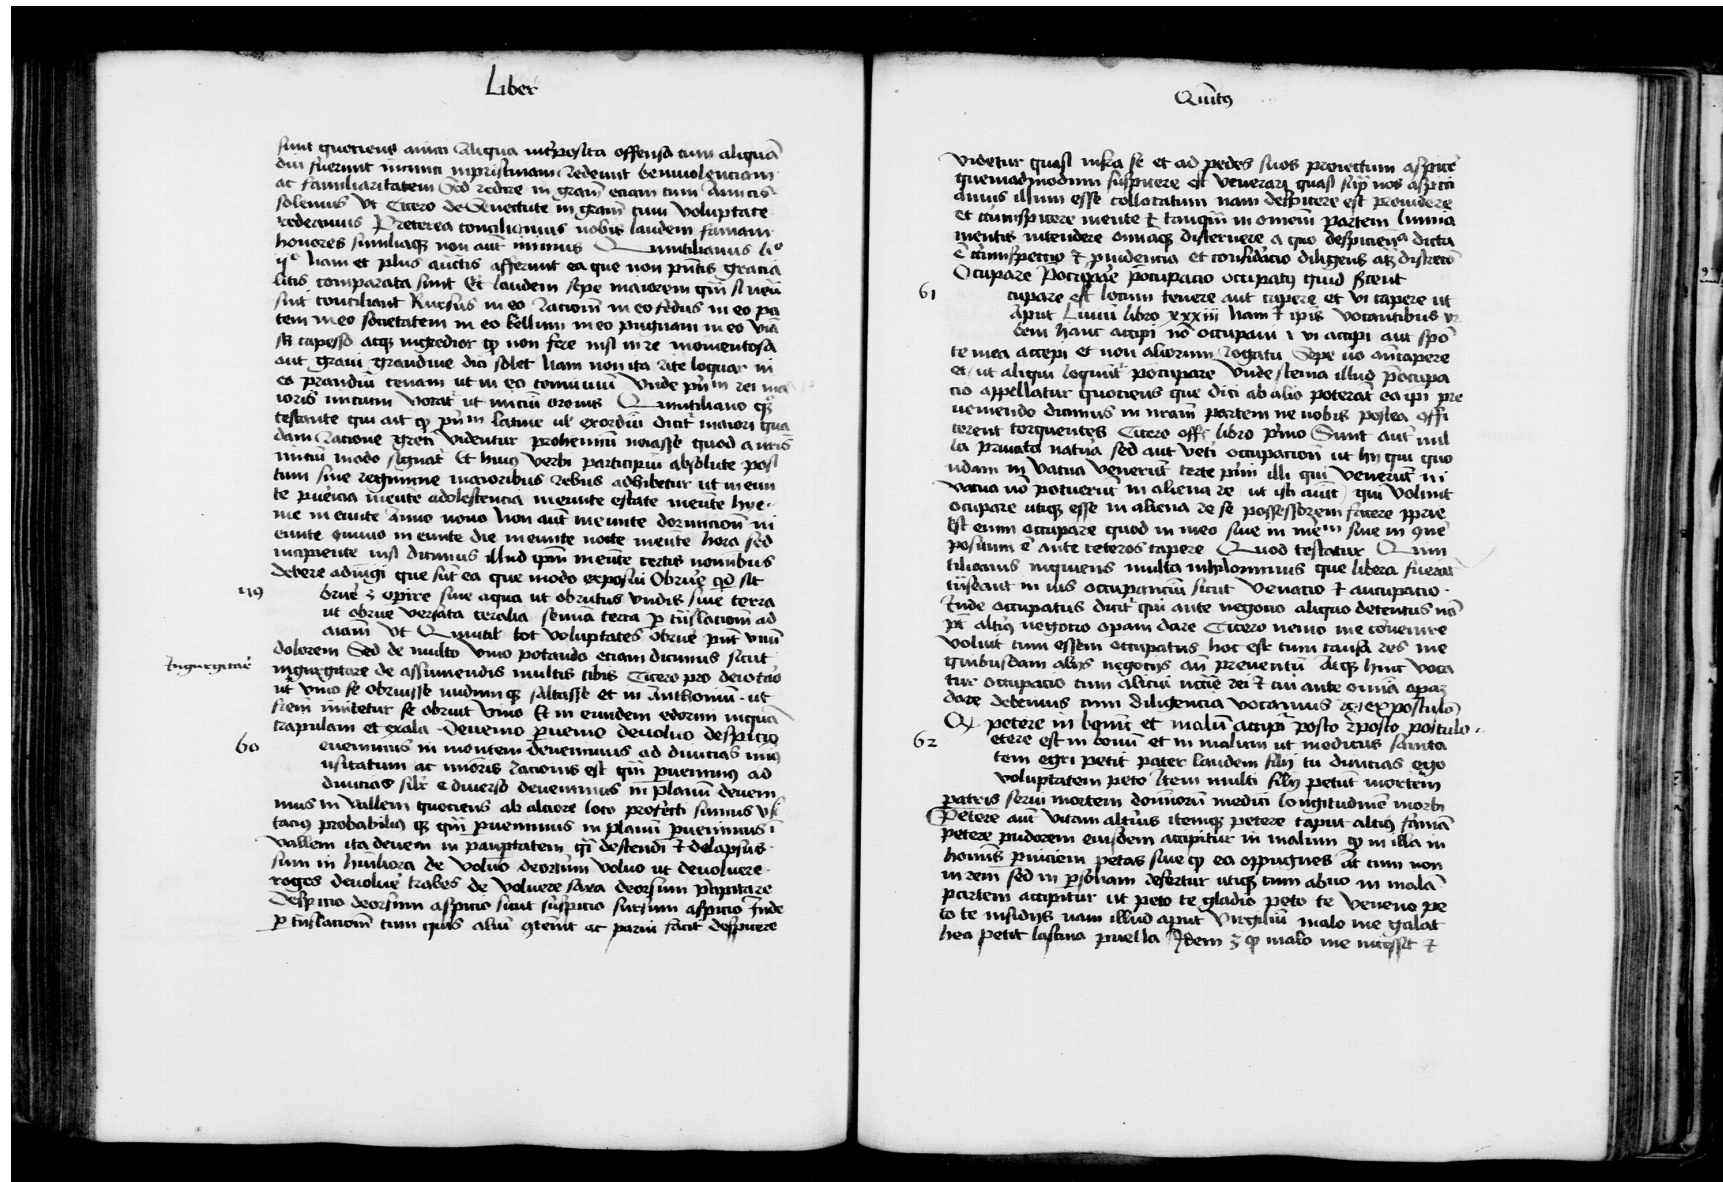 Liber
sunt quotiens amici aliqua int̕posita offensa cum aliquā
diu fuerunt inimici in pristinam redeunt beniuolenciam
ac familiaritatem Sed redire in gram̄ eciam cum amicis
solemus Vt Cicero de Senectute in gram̄ cum voluptate
redeamus Preterea conciliamus nobis laudem famam
honores similiaqꝫ non aūt inimus Quintilianus li°
nam et plus auctis afferunt ea que non pn̄tis gracia
litis comparata sunt Et laudem sepe maiorem qm̄ si
sint conciliant Rursus in eo racionē in eo fedus in eo pa
cem in eo societatem in eo bellum in eo pugnam in eo viā
capesso atqꝫ ingredior non fere nisi in re momentosa
aut graui grandiue dici solet Nam non ita rite loquar in
eo prandiū cenam ut in eo conuiuiū Vnde rei ma
ioris inicium vocat̕ ut iniciū oronis Quintiliano
testante qui ait latine uel exordiū dicit̕ maiori qua
dam racione greci videntur prohemiū noīasse quod a nr̄is
iniciū modo signat̕ Et huiꝰ verbi participiū absolute posi
tum siue regimine maioribus rebus adhibetur ut ineun
te puericia ineūte adolescencia ineunte estate ineūte hye
me in eunte anno nouo Non aūt ineunte dormicionē in
eunte conuiuio in eunte die ineunte nocte ineūte hora sed
incipiente nisi dicimus illud ip̄m ineūte certis nominibus
debere adiungi que sūt ea que modo exposui Obruē qd̄ sit
59 bruē ē opire siue aqua ut obrutus vndis siue terra
ut obrue versata cerealia semina terra p̱ tn̄slacionem ad
aiam̄ Vt Quintil tot voluptates obrue pn̄t vnū
dolorem Sed de multo vino potando eciam dicimus sicut
Ingurgitare
ingurgitare de assumendis multis cibis Cicero pro deiotaro
ut̕ vino se obruisse nudumqꝫ saltasse et in Anthoniū ut
item imitetur se obruit vino Et in eundem edormi inquā
crapulam et exala Deuenio p̱uenio deuoluo despicio
60 euenimus in montem deuenimus ad diuicias
usitatum ac minoris racionis est qm̄ p̱uenimꝰ ad
diuicias sil̕r e diuerso deuenimus in planū deueni
mus in vallem quociens ab alciore loco profecti sumus
tacius probabiliꝰ qm̄ p̱uenimus in planū p̱uenimus ī
vallem ita deueni in paup̱tatem qi̅ descendi ⁊ delapsus
sum in humiliora de voluo deorsum voluo ut deuoluere
rogos deuoluē trabes de voluere saxa deorsum p̄cipitare
Despicio deorsum aspicio sicut suspicio sursum aspicio Inde
p̱ tn̄slacionē cum quis aliū ꝯtēnit ac parui facit despicere
Quītꝰ
videtur quasi infra se et ad pedes suos proiectum aspicē
quemadmodum suspicere est venerari quasi sup̱ nos aspici
amus illum esse collocatum nam despicere est prouidere
et circūspicere mente ⁊ tanqm̄ in omnem partem lumina
mentis intendere omniaqꝫ discernere a quo despiciencia dicta
ē circūspectio ⁊ prudencia et considacio diligens atqꝫ discrecō
Occupare p̄occupare p̄occupacio occupatꝰ quid sc̄cent
61 cupare est locum tenere aut capere et vi capere ut
aput Liuiū libro xxxiii Nam ⁊ ip̄is vocantibus vr
bem hanc accepi nō occupaui i vi accepi aut spō
te mea accepi et non aliorum rogatu Sepe uo an̄capere
et ut aliqui loquūt̕ p̄occupare Vnde scema illud p̄occupa
cio appellatur quociens que dici ab alio poterāt ea ipi pre
ueniendo dicimus in nr̄am partem ne nobis postea offi
cerent torquentes Cicero off libro p̱mo Sunt aūt nul
la priuata natura sed aut veti occupacionē ut hii qui quo
ndam in vacua venerūt certe p̱mi illi qui venerūt in
vacua nō potuerūt in aliena re ut isti aiūt qui volunt
occupare utiqꝫ esse in aliena re se possessorem facere p̱prie
Est enim occupare quod in meo siue in siue in ꝯne
positum ē ante ceteros capere Quod testatur Quin
tilianus inquiens multa nihilominus que libera fuerāt
tn̄seunt in ius occupanciū sicut venacio ⁊ aucupacio
Inde occupatus dicit̕ qui ante negocio aliquo detentus nō
pt̄ altiꝰ negocio operam dare Cicero nemo me conuenire
voluit cum essem occupatus hoc est cum causa res me
quibusdam aliis negocijs an̄ preuentū Atqꝫ hinc voca
tur occupacio cum alicui rei ⁊ cui ante omnia opaꝫ
dare debemus cum diligencia vocamus expostulo
Q petere in bonū et malū accipit̕ posco r̄posco postulo
62 etere est in bonū et in malum ut medicus sanita
tem egri petit pater laudem filij tu diuicias ego
voluptatem peto Item multi filij petūt mortem
patris serui mortem dominorū medici longitudinē morbi
Petere aūt vitam altiꝰus itemqꝫ petere caput altiꝰ famā
petere pudorem eiusdem accipitur in malum qꝫ in illa in
hominis p̱niciem petas siue qꝫ ea oppugnes At cum non
in rem sed in p̱sonam refertur utiqꝫ cum abuo in malā
partem accipitur ut peto te gladio peto te veneno pe
to te insidijs nam illud aput Virgiliū malo me galat
hea petit lasciua puella Idem ē qꝫ malo me incessit ⁊